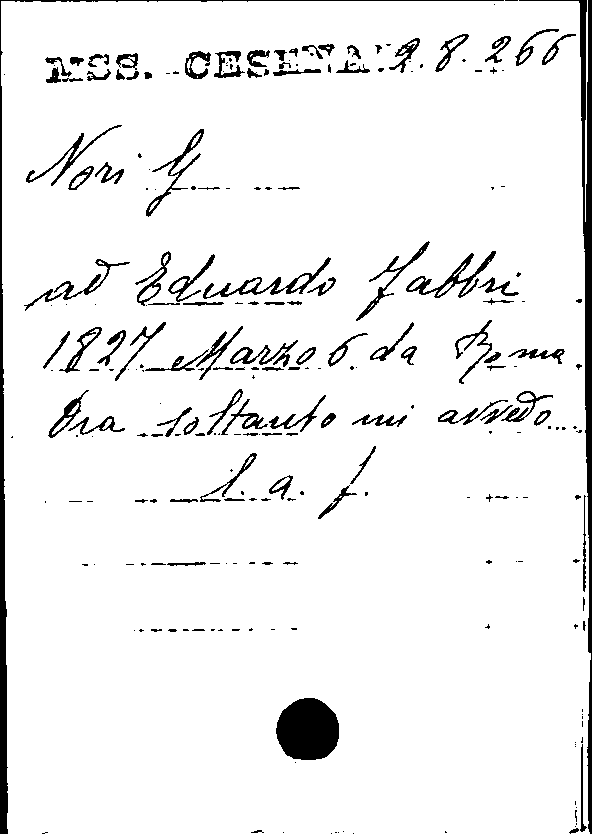 MSS. CESENA 2.8.266
Neri G.
ad Eduardo Fabbri
1827 Marzo 6. da Roma
Ora soltanto mi avvedo...
l. a. f.